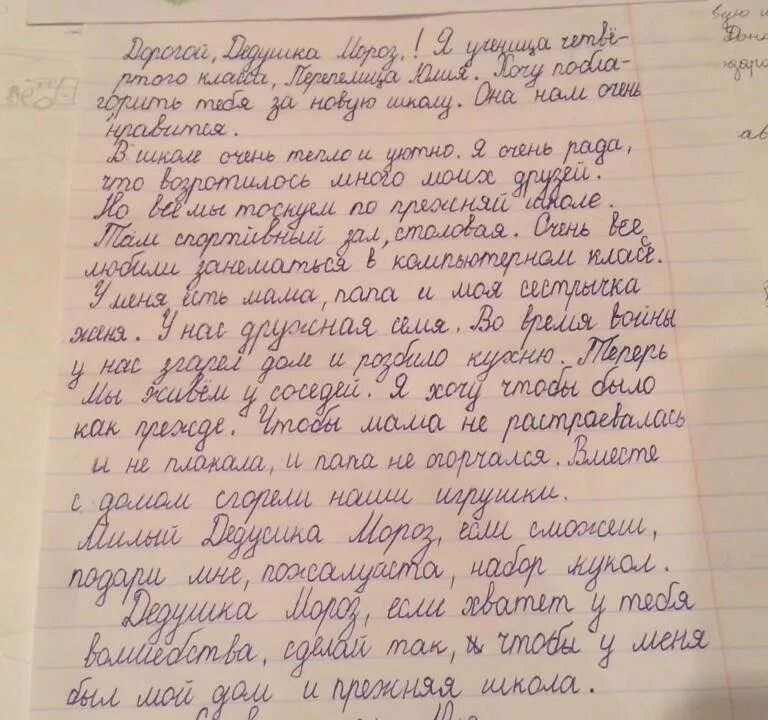 Дорогой, Дедушка Мороз,! Я ученица четвё-
ртого класса, Перепелица Юлия. Хочу побла-
горить тебя за новую школу. Она нам очень
нравится.
В школе очень тепло и уютно. Я очень рада,
что возротилось много моих друзей.
Но все мы тоскуем по прежняй школе.
Там спортивный зал, столовая. Очень все
любили занематься в компьютерном класе.
У меня есть мама, папа и моя сестрычка
женя. У нас дружная семя. Во время войны
у нас згарел дом и розбило кухню. Теперь
мы живём у соседей. Я хочу чтобы было
как прежде. Чтобы мама не растраевалась
и не плакала, и папа не огорчался. Вместе
с домом сгорели наши игрушки.
Милый Дедусика Мороз, если сможеш,
подари мне, пожалуйста, набор кукол.
Дедушка Мороз, если хватет у тебя
волшебства, сделай так, чтобы у меня
был мой дом и прежняя школа.
вую
ав